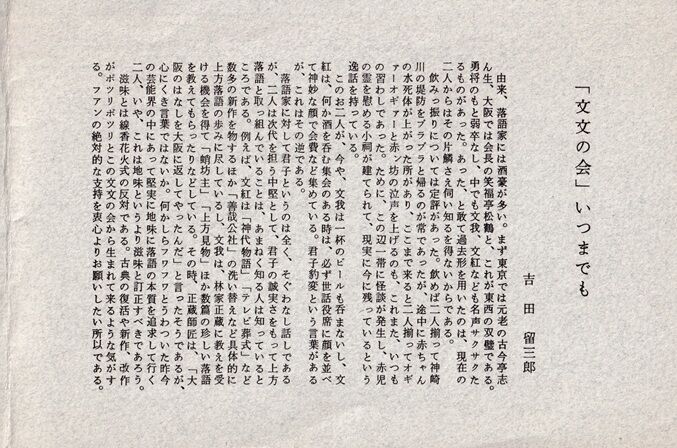 「文文の会」いつまでも
吉田留三郎
由来、落語家には酒豪が多い。まず東京では元老の古今亭志
ん生、大阪では会長の笑福亭松鶴と、これが東西の双璧である。
勇将のもと弱卒なし、中でも文我、文紅なども名声サクサクた
るものがあった。あった、と敢て過去形を用いたのは、現在の
二人からはその片鱗さえ伺い知るを得ないからである。
飲みっ振りについては定評があった。飲めば二人揃って神崎
川の堤防をブラブラと帰るのが常であったが、途中に赤ちゃん
の水死体が上がった所があり、ここまで来ると二人揃ってオギ
ァーオギァーと赤ン坊の泣声を上げるのも、これまた、いつも
の習わしであった。ために、この辺一帯に怪談が発生し、赤児
の霊を慰める小祠が建てられて、現実に今に残っているという
逸話を持っている。
このお二人が、今や、文我は一杯のビールも呑まないし、文
紅は、何か酒を呑む集会のある時は、必ず世話役席に顔を並べ
て神妙な顔で会費など集めている。君子豹変という言葉がある
が、これはその逆である。
落語家に対して君子というのは全く、そぐわなし話しである
が、二人は次代を担う中堅として、君子の誠実さをもって上方
落語と取っ組んでいることは、あまねく知る人は知っていると
ころである。例えば、文紅は「神代物語」「テレビ葬式」など
数多の新作を物するほか「善哉公社」の洗い替えなど具体的に
上方落語の歩みに尽しているし、文我は、林家正蔵に教えを受
ける機会を得て「蛸坊主」「上方見物」ほか数篇の珍しい落語
を教えてもらったりなどしている。その時、正蔵師匠は、「大
阪のはなしを大阪に返してやったんだ」と言ったそうであるが、
心にくき言葉ではないか。何かしらフワフワとうわついた昨今
の芸能界の中にあって堅実に地味に落語の本質を追求して行く
二人、いや、これは地味というより滋味と訂正すべきであろう。
滋味とは線香花火式の反対である。古典の復活や新作、改作
がポツリポツリとこの文文の会から生まれて来るような気がす
る。ファンの絶対的な支持を衷心よりお願いしたい所以である。